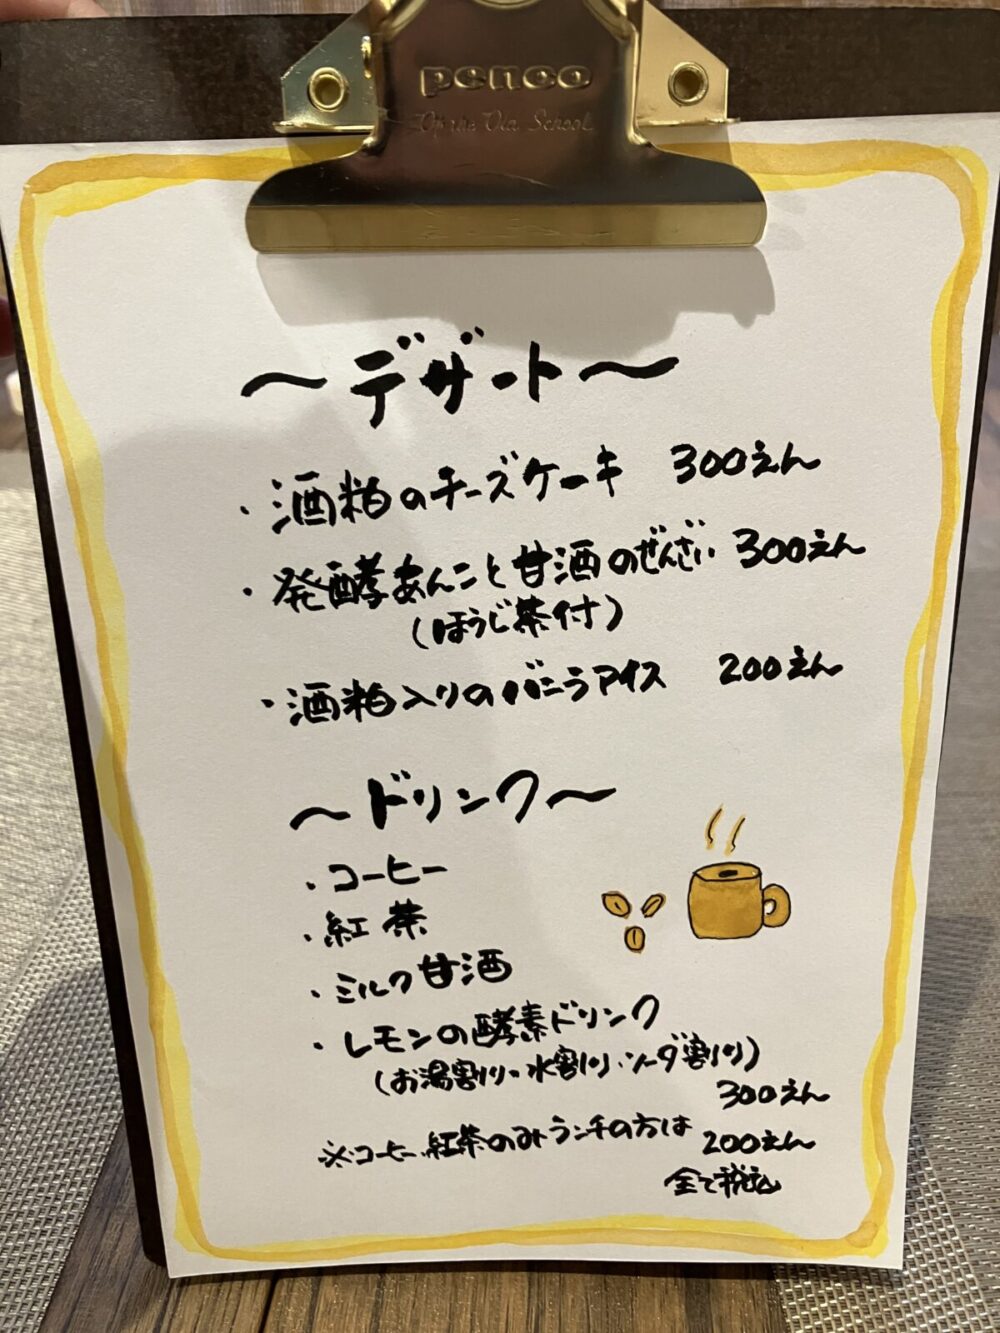 penco
～デザート～
・酒粕のチーズケーキ 300えん
・発酵あんこと甘酒のぜんざい 300えん
（ほうじ茶付）
・酒粕入りのバニラアイス 200えん
～ドリンク～
・コーヒー
・紅茶
・ミルク甘酒
・レモンの酵素ドリンク
（お湯割り・水割り・ソーダ割り）
300えん
※コーヒー、紅茶のみランチの方は 200えん
全て税込